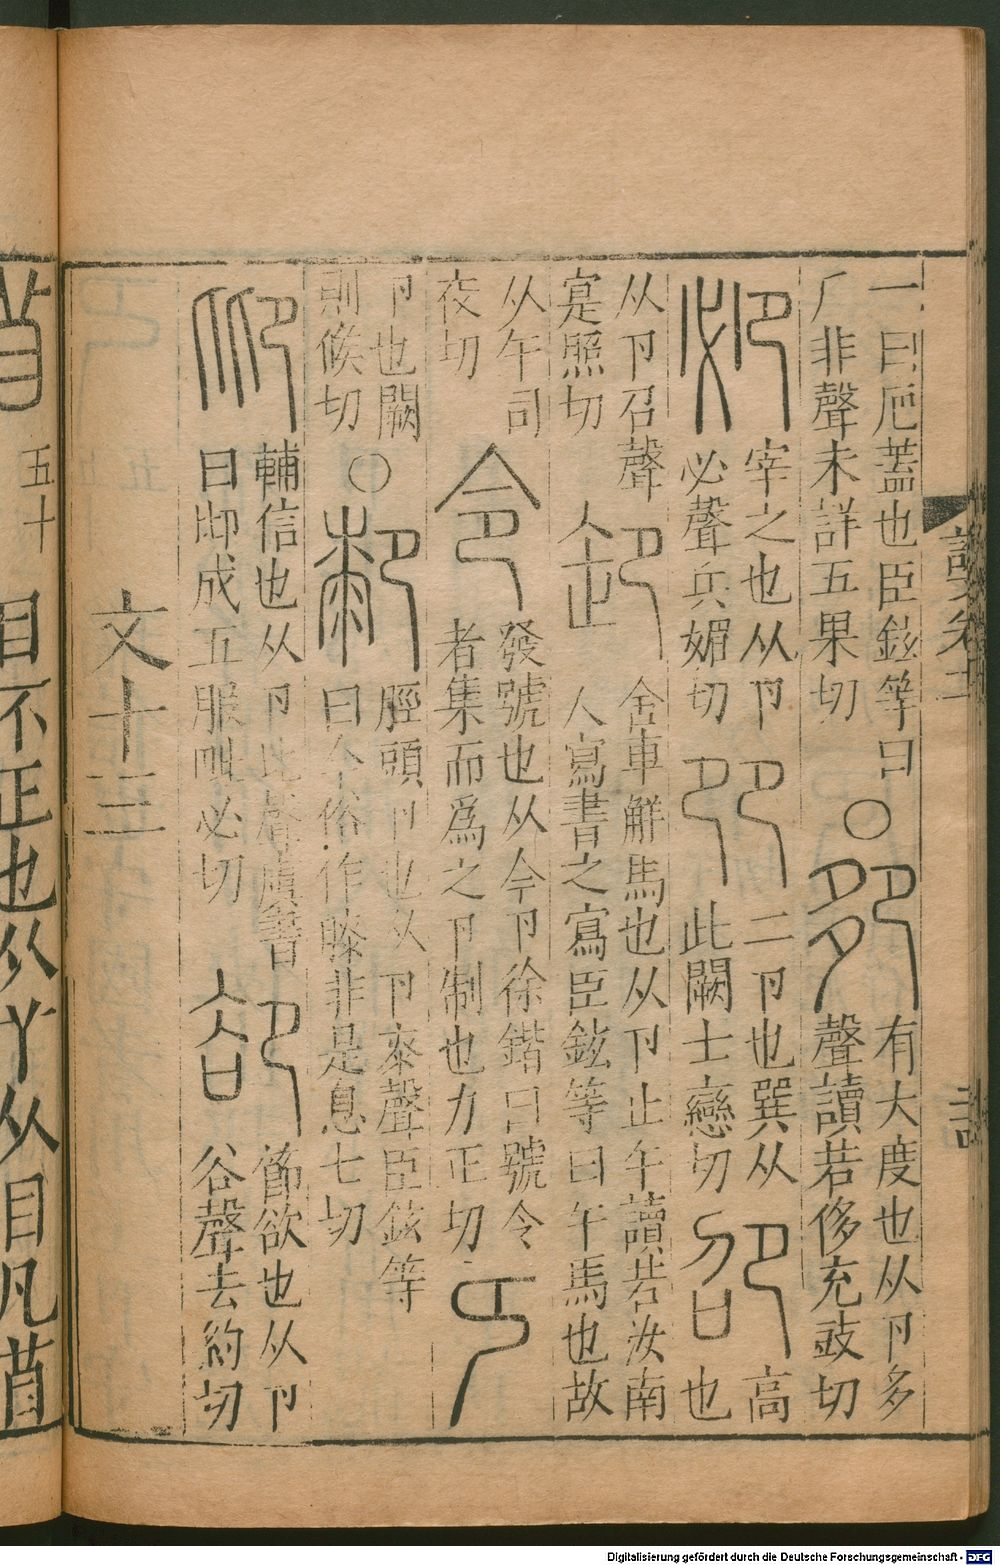 一曰厄蓋也臣鉉等曰
厂非聲未詳五果切
○
卶
有大度也从卪多
聲讀若侈充豉切
𠨘
宰之也从卪
必聲兵媚切
𠨎
二卪也巽从
此闕士戀切
卲
高
也
从卪召聲
寔照切
卸
舍車觧馬也从卪止午讀若汝南
人寫書之寫臣鉉等曰午馬也故
从午司
夜切
令
發號也从今卪徐鍇曰號令
者集而爲之卪制也力正切
卪也闕
則候切
○
厀
脛頭卪也从卪桼聲臣鉉等
曰今俗作膝非是息七切
𠨒
輔信也从卪比聲虞書
曰𠨒成五服毗必切
卻
節欲也从卪
谷聲去約切
文十三
五十
目不正也从𦫳从目凡苜
Digitalisierung gefördert durch die Deutsche Forschungsgemeinschaft - DFG